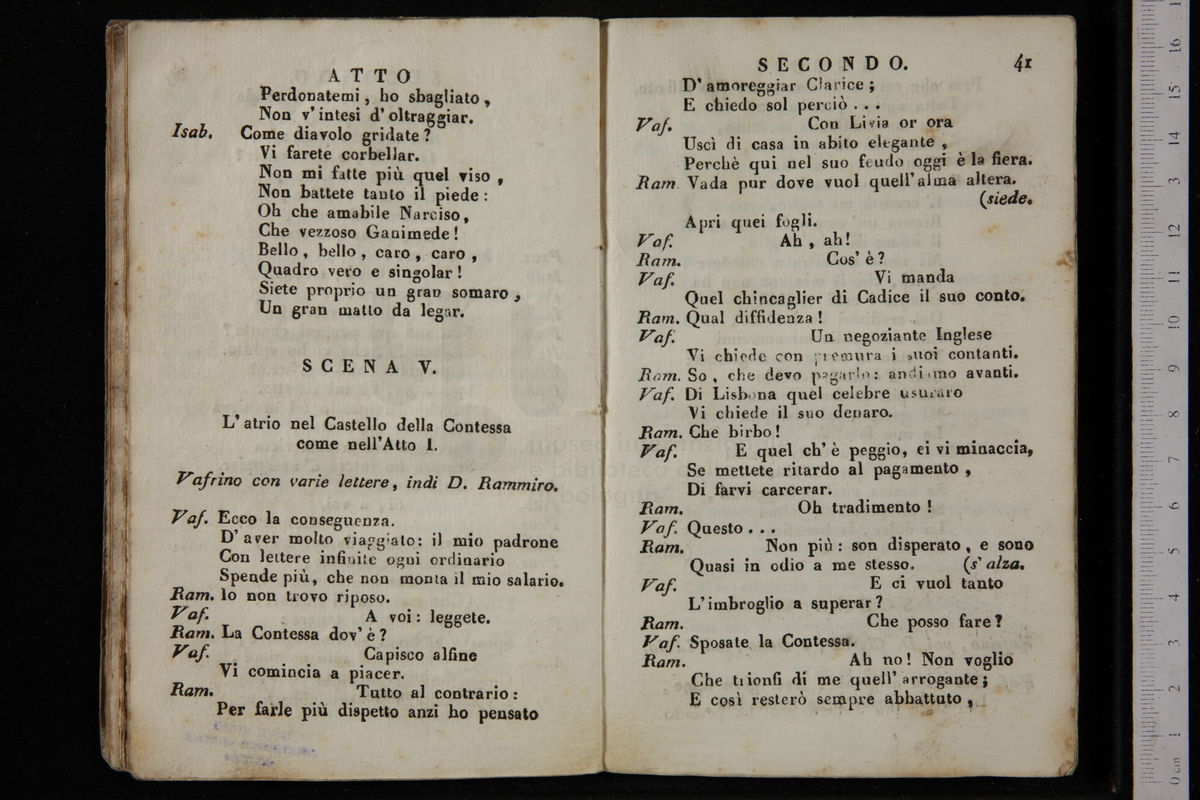 ATTO
Perdonatemi, ho sbagliato,
Non v' intesi d' oltraggiar.
Isab. Come diavolo gridate?
Vi farete corbellar.
Non mi fatte più quel viso,
Non battete tanto il piede:
Oh che amabile Narciso,
Che vezzoso Ganimede!
Bello, bello, caro, caro,
Quadro vero e singolar!
Siete proprio un gran somaro,
Un gran matto da legar.
SCENA V.
L' atrio nel Castello della Contessa
come nell' Atto I.
Vafrino con varie lettere, indi D. Rammiro.
Vaf. Ecco la conseguenza.
D' aver molto viaggiato: il mio padrone
Con lettere infinite ogni ordinario
Spende più, che non monta il mio salario.
Ram. Io non trovo riposo.
Vaf. A voi: leggete.
Ram. La Contessa dov' è?
Vaf. Capisco alfine
Vi comincia a piacer.
Ram. Tutto al contrario:
Per farle più dispetto anzi ho pensato
SECONDO. 41
D' amoreggiar Clarice;
E chiedo sol perciò...
Vaf. Con Livia or ora
Uscì di casa in abito elegante,
Perchè qui nel suo feudo oggi è la fiera.
Ram. Vada pur dove vuol quell' alma altera.
(siede.
Apri quei fogli.
Vaf. Ah, ah!
Ram. Cos' è?
Vaf. Vi manda
Quel chincaglier di Cadice il suo conto.
Ram. Qual diffidenza!
Vaf. Un negoziante Inglese
Vi chiede con premura i suoi contanti.
Ram. So, che devo pagarlo: andiamo avanti.
Vaf. Di Lisbona quel celebre usuraro
Vi chiede il suo denaro.
Ram. Che birbo!
Vaf. E quel ch' è peggio, ei vi minaccia,
Se mettete ritardo al pagamento,
Di farvi carcerar.
Ram. Oh tradimento!
Vaf. Questo...
Ram. Non più: son disperato, e sono
Quasi in odio a me stesso. (s' alza.
Vaf. E ci vuol tanto
L' imbroglio a superar?
Ram. Che posso fare?
Vaf. Sposate la Contessa.
Ram. Ah no! Non voglio
Che trionfi di me quell' arrogante;
E così resterò sempre abbattuto,